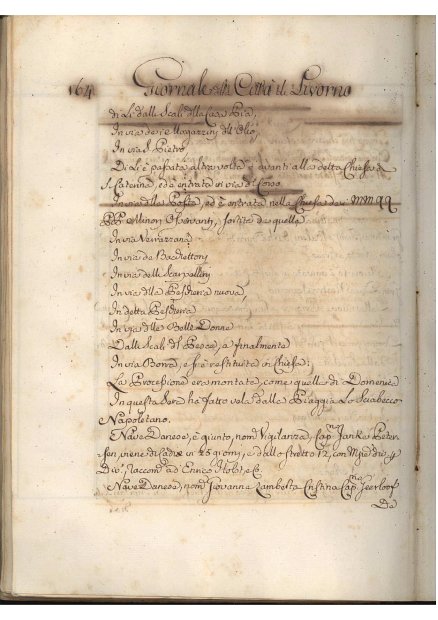 164 Giornale della Città di Livorno
di Lì dalli Scali della Casa Pia,
In via dei Magazzini dell'Olio,
In via S. Pietro
Di Lì è passata altra volta avanti alla detta Chiesa di
S. Caterina, ed è entrata in via di Corso
In via della Posta, ed è entrata nella Chiesa dei MM. QQ
PP. Minori Osservanti, sortita da quella
In via Verrazzana
In via de Bachettoni
In via delle Scarpellini
In via della Pescheria nuova,
In detta Pescheria
In via delle Belle Donne
Dalli Scali del Pesce, e finalmente
In via Borra, e si è restituita in Chiesa;
La Processione era montata, come quella di Domenica
In questa Sera ha fatto vela dalle Piaggia Lo Sciabecco
Napoletano.
Nave Danese, è giunto, nom.ta Vigilanza, Cap.n Janke Peter
sen, viene di Cadice in 25 giorni, e dello stretto 12, con
ad Enrico
Nave Danese, nom.ta Giovanna Cristina Cap.n
De